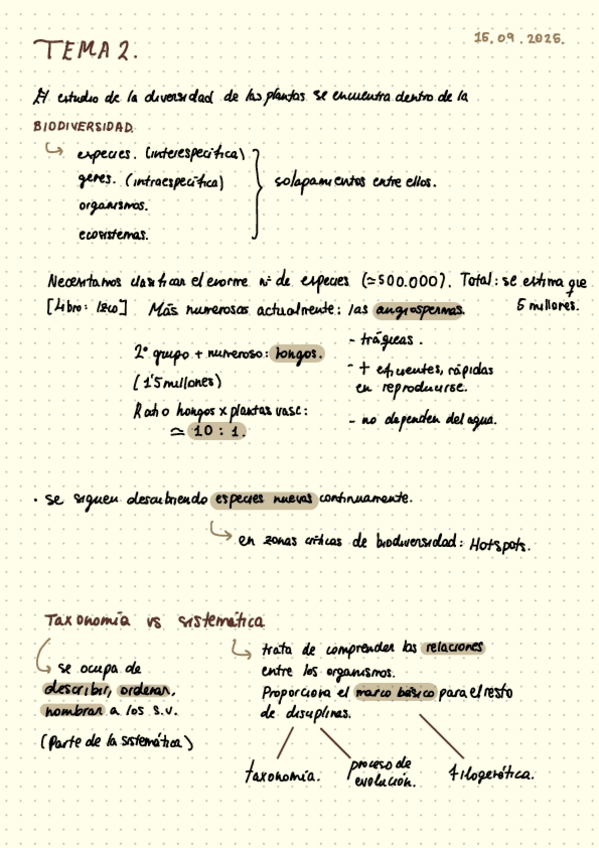 15.09.2025.
TEMA 2.
El estudio de la diversidad de las plantas se encuentra dentro de la
BIODIVERSIDAD.
especies. (interespecífica)
genes. (intraespecífica)
solapamientos entre ellos.
organismos.
ecosistemas.
Necesitamos clasificar el enorme nº de especies (≃500.000). Total: se estima que
5 millones.
[Libro: Izco] Más numerosas actualmente: las angiospermas.
- tráqueas.
- + eficientes, rápidas
en reproducirse.
- no dependen del agua.
2º grupo + numeroso: hongos.
(1'5 millones)
Ratio hongos x plantas vasc:
≃ 10:1.
· se siguen descubriendo especies nuevas continuamente.
en zonas críticas de biodiversidad: Hotspots.
Taxonomía vs sistemática
se ocupa de
describir, ordenar,
nombrar a los s.v.
(Parte de la sistemática)
trata de comprender las relaciones
entre los organismos.
Proporciona el marco básico para el resto
de disciplinas.
taxonomía.
proceso de
evolución.
filogenética.